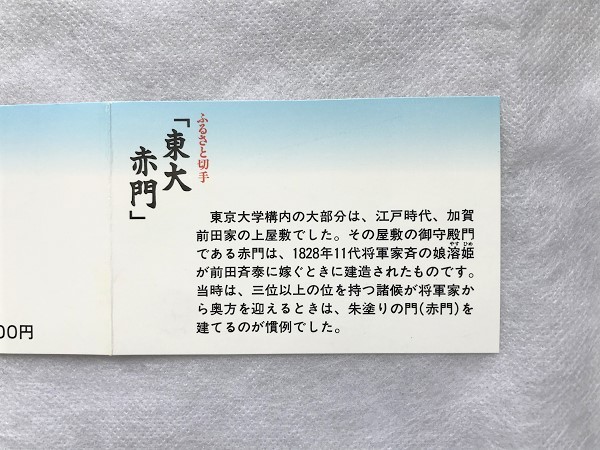 ふるさと切手
「東大
赤門」
東京大学構内の大部分は、江戸時代、加賀
前田家の上屋敷でした。その屋敷の御守殿門
やす ひめ
である赤門は、1828年11代将軍家斉の娘溶姫
が前田斉泰に嫁ぐときに建造されたものです。
当時は、三位以上の位を持つ諸候が将軍家か
ら奥方を迎えるときは、朱塗りの門(赤門)を
建てるのが慣例でした。
00円